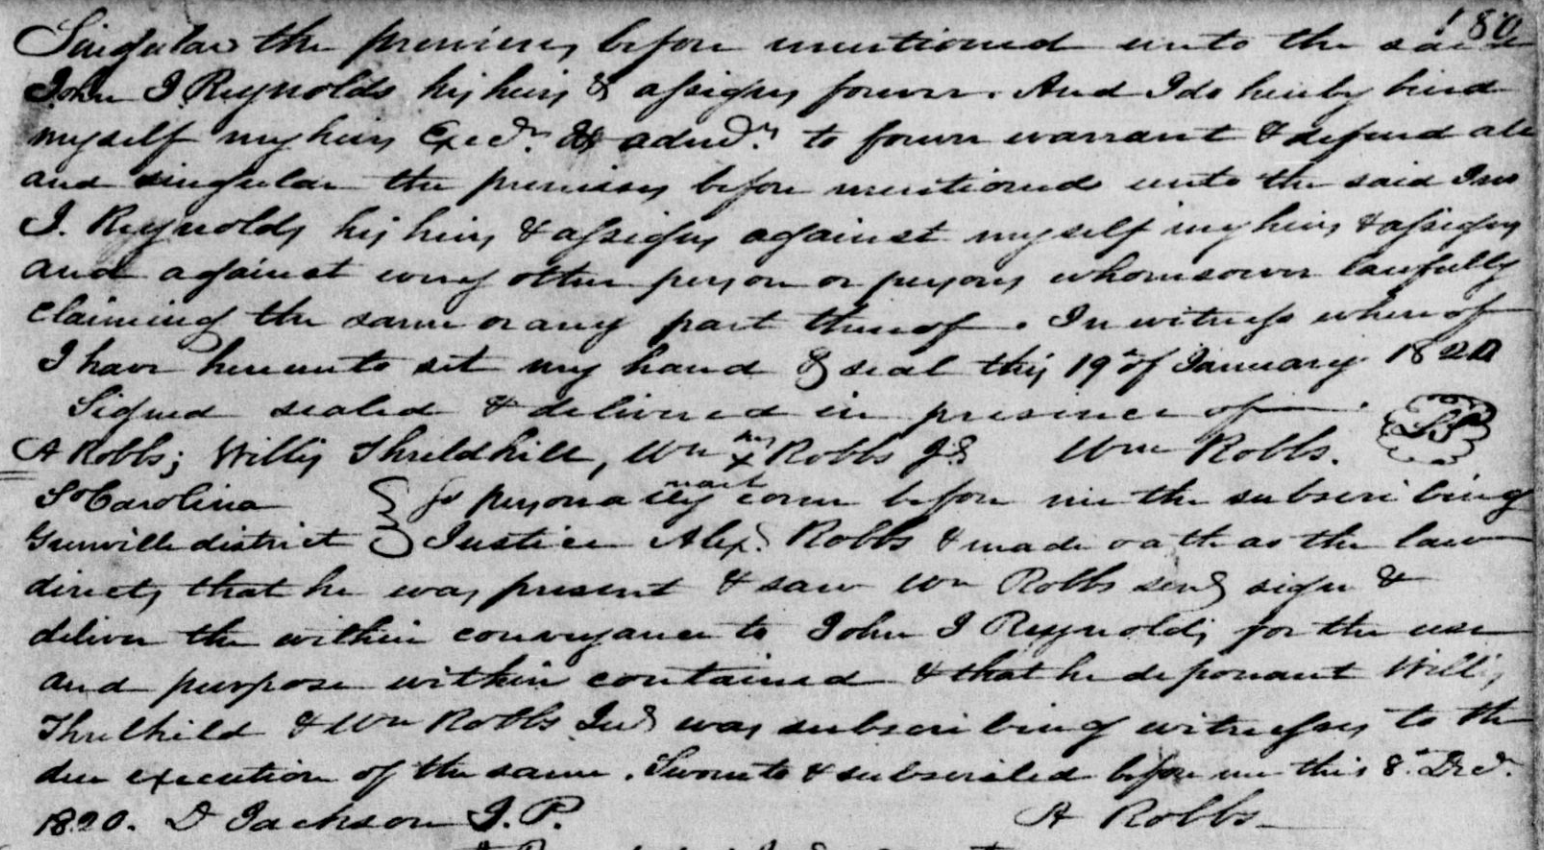 180
Singular the premises before mentioned unto the said
John J. Reynolds his heirs & assigns forever. And I do hereby bind
myself my heirs Exedrs & admdrs to forever warrant & defend all
and singular the premises before mentioned unto the said Jno
J. Reynolds his heirs & assigns against myself my heirs & assigns
and against every other person or persons whomsoever lawfully
claiming the same or any part thereof. In witness whereof
I have hereunto set my hand & seal this 19th of January 1820
Signed sealed & delivered in presence of
A Robbs; Willis Thrildkill, Wm his x mark Robbs Jd Wm Robbs. LS
So Carolina } personally came before me the subscribing
Greenville district } Justice Alexr Robbs & made oath as the law
directs that he was present & saw Wm Robbs send sign &
deliver the within conveyance to John J Reynolds for the use
and purpose within contained & that he deponant Willis
Threlkild & Wm Robbs Jud was subscribing witnesses to the
due execution of the same. Sworn to & subscribed before me this 8th Decr.
1820. D Jackson J.P. A Robbs